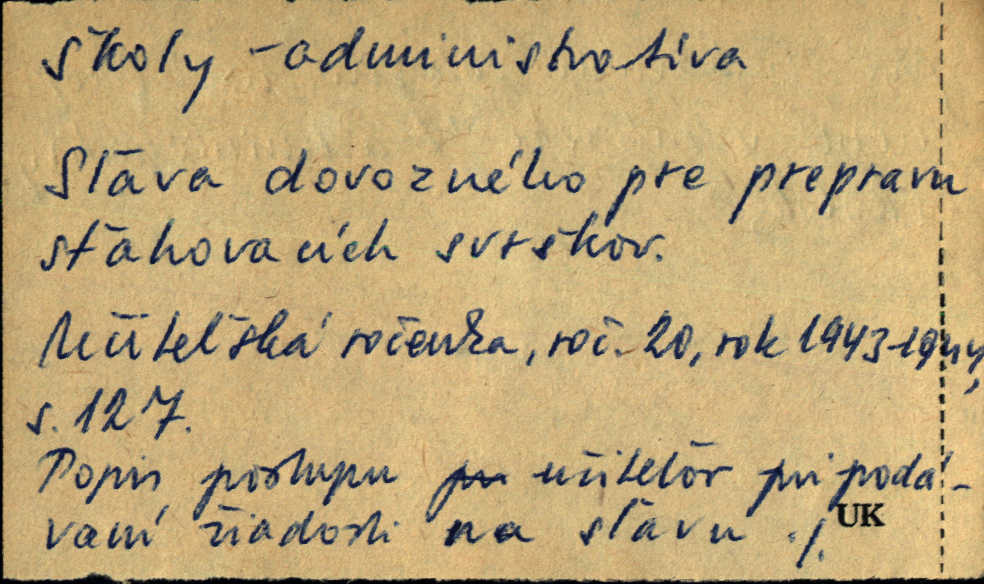 školy - administratíva
Sľava dovozného pre prepravu
sťahovacích svrškov.
Učiteľská ročenka, roč. 20, rok 1943-1944,
s. 127.
Popis postupu pri učiteľov pri podá-
vaní žiadosti na sľavu ./.
UK